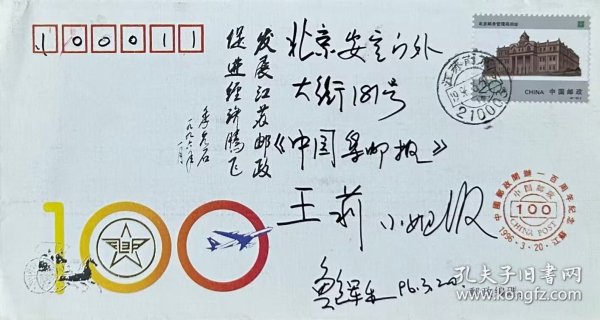 100011
北京安定门外
大街181号
《中国集邮报》
王莉小姐收
96.3.20.
发展江苏邮政
促进经济腾飞
一九九六年
一月
100
北京邮务管理局旧址
20
CHINA 中国邮政
江苏
210000
中國郵政開辦一百周年纪念
中国邮政
100
CHINA POST
1996·3·20·江蘇
孔夫子旧书网